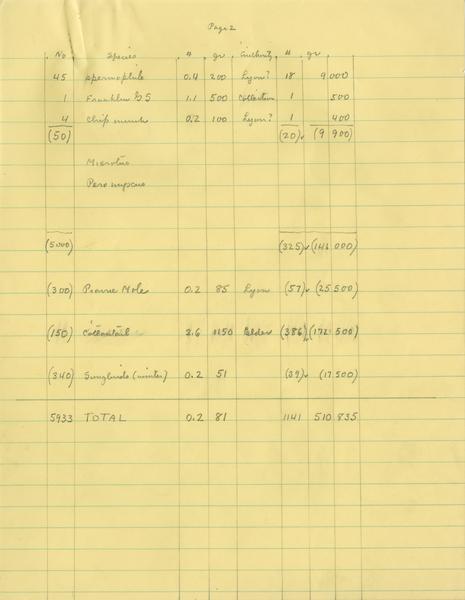 Page 2
No Species # gr Authority # gr
45 spermophile 0.4 200 Lyon? 18 9 000
1 Franklin G S 1.1 500 Collection 1 500
4 Chipmunk 0.2 100 Lyon? 1 400
(50) (20) (9 900)
Microtus
Peromyscus
(5000) (325) (146 000)
(300) Prairie Mole 0.2 85 Lyon (57) (25 500)
(150) Cottontail 2.6 1150 Elder (386) (172 500)
(340) Songbirds (winter) 0.2 51 (39) (17 500)
5933 TOTAL 0.2 81 1141 510 835